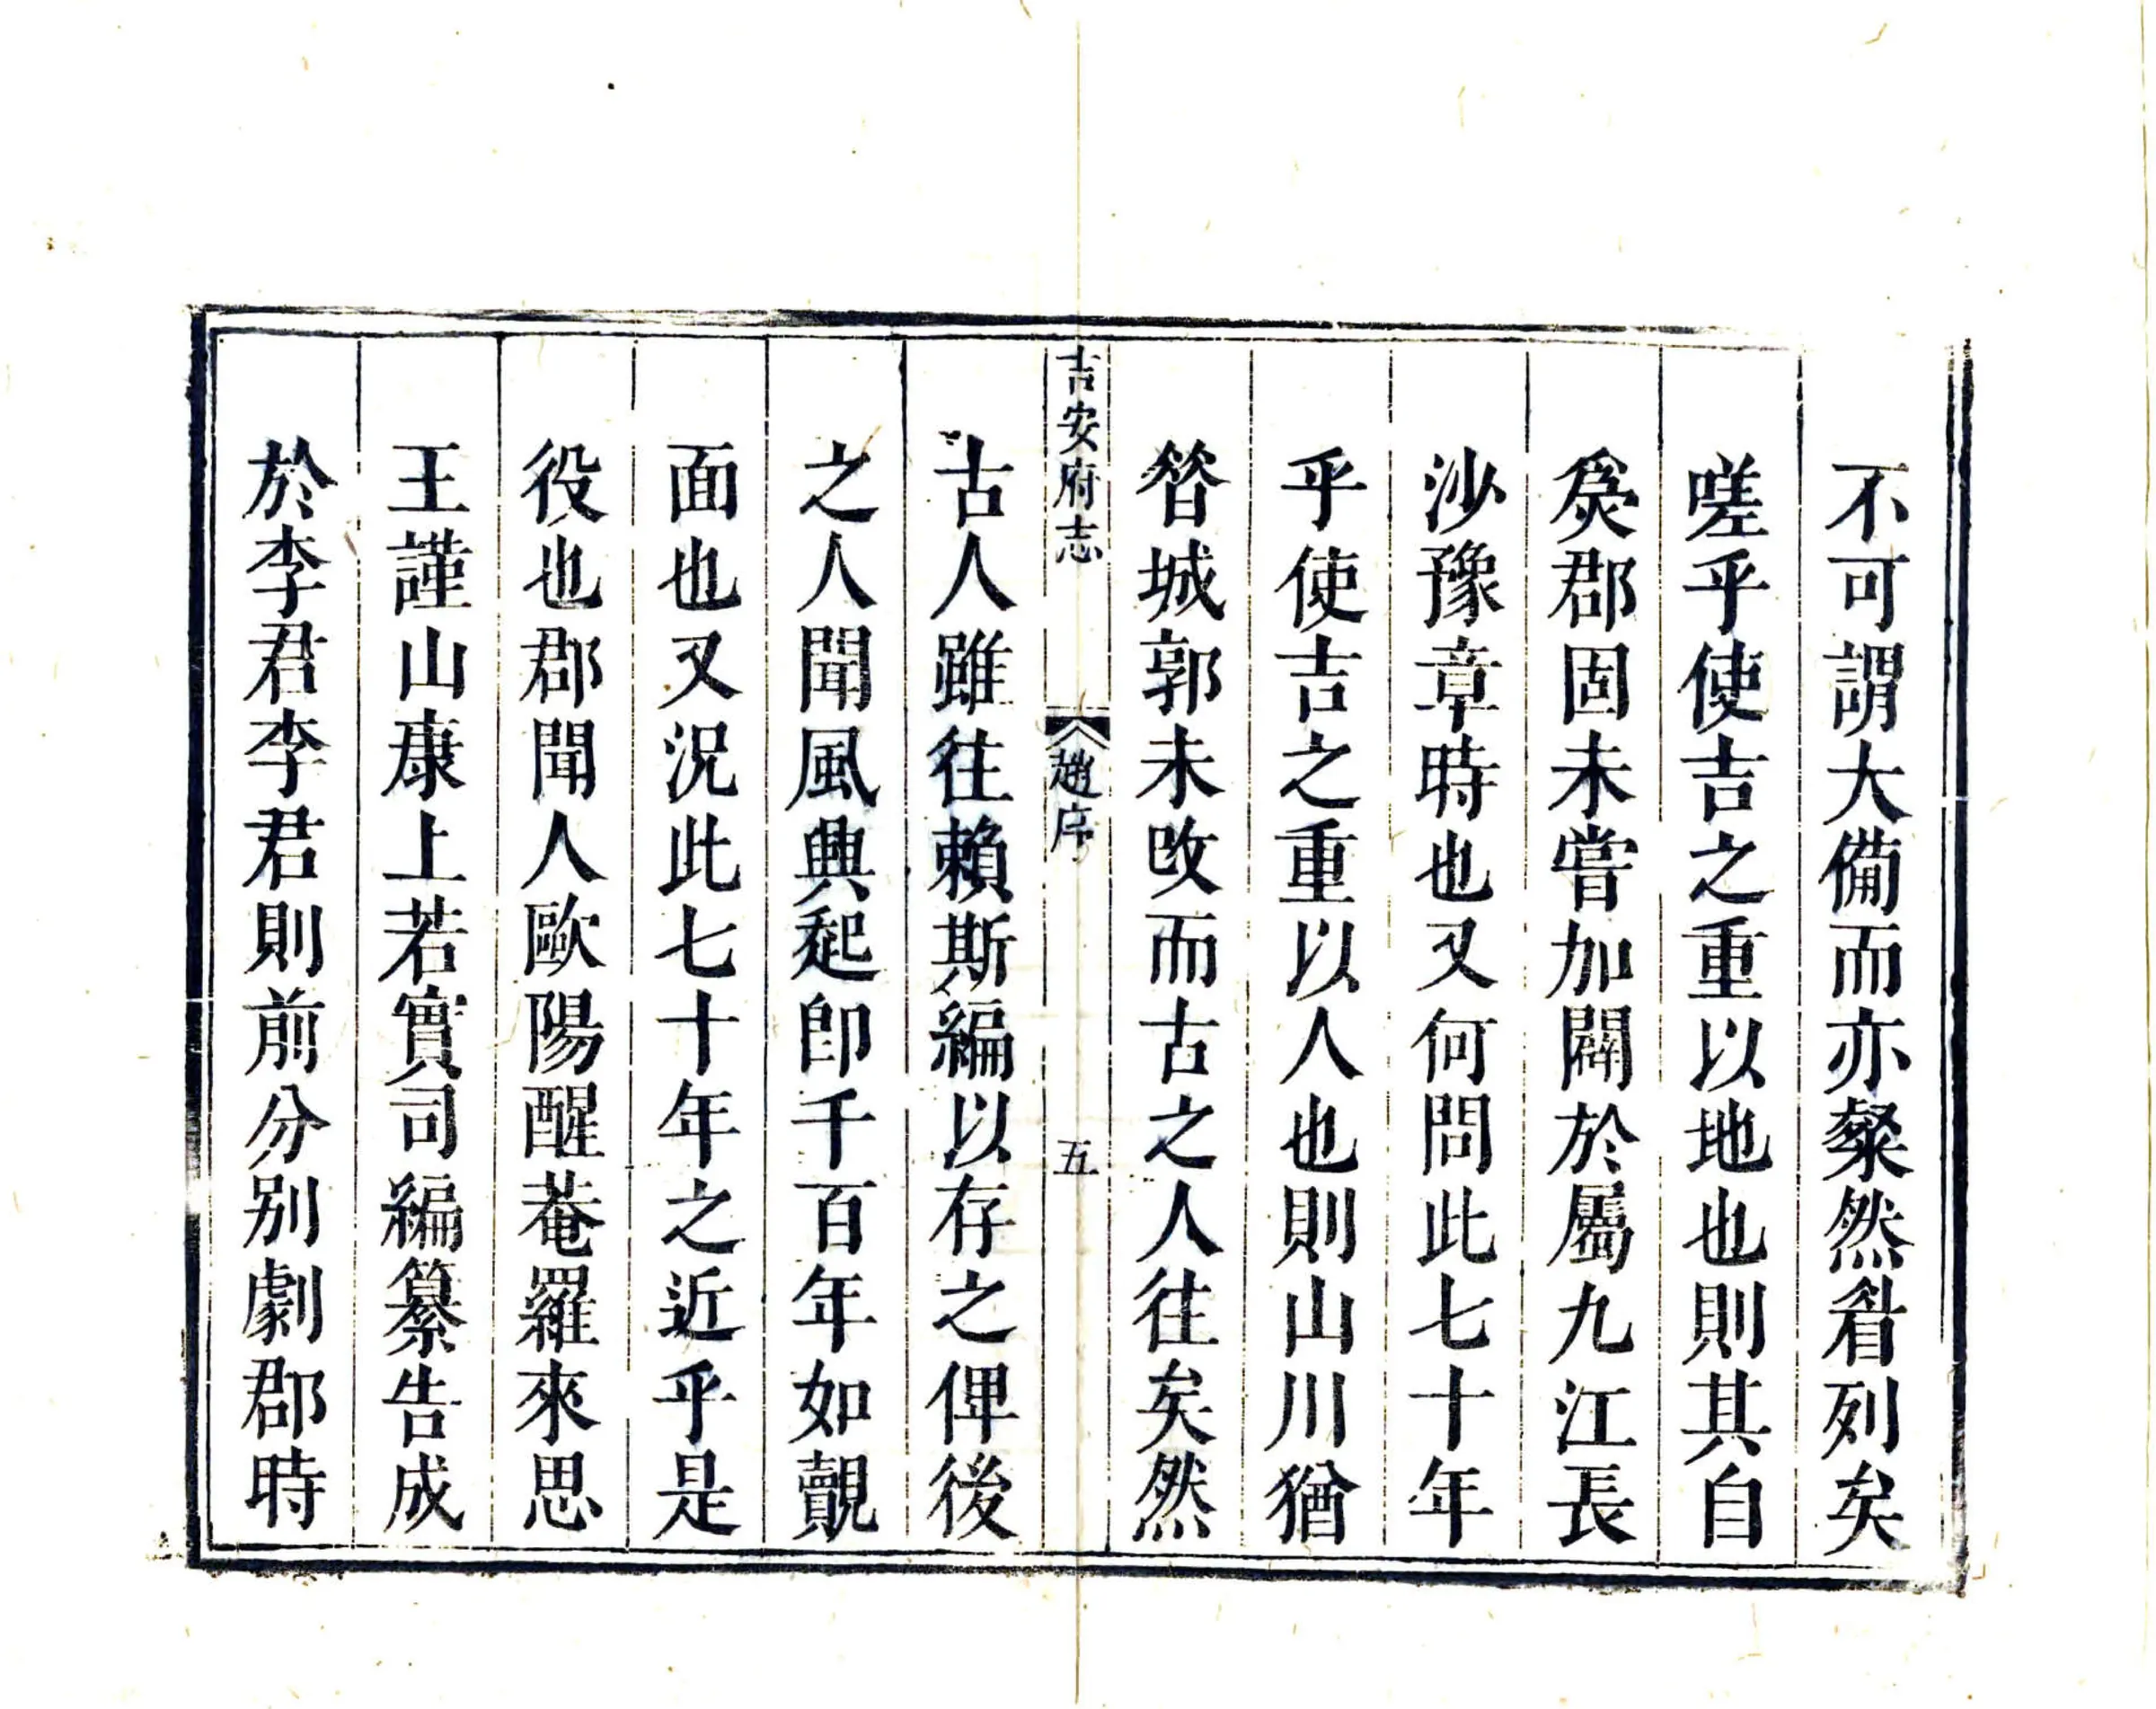 不可謂大備而亦粲然眉列矣
嗟乎使吉之重以地也則其自
爲郡固未嘗加闢於屬九江長
沙豫章時也又何問此七十年
乎使吉之重以人也則山川猶
昝城郭未改而古之人往矣然
吉安府志 趙序 五
古人雖往賴斯編以存之俾後
之人聞風興起卽千百年如覿
面也又況此七十年之近乎是
役也郡聞人歐陽醒菴羅來思
王謹山康上若實司編纂告成
於李君李君則前分别劇郡時